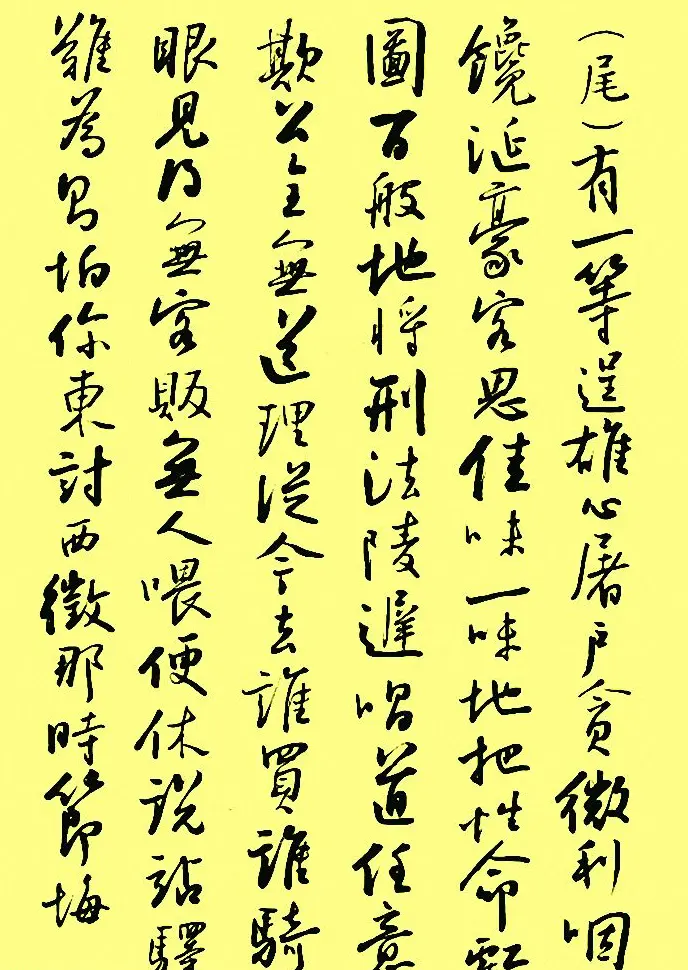 (尾)有一等逞雄心屠户貪微利咽
饞涎豪客思佳味一味地把性命虧
圖百般地將刑法陵遲唱道任意
欺公全無道理從今去誰買誰騎
眼見得無客販無人喂便休說站驛
難為怕你東討西徵那時節悔